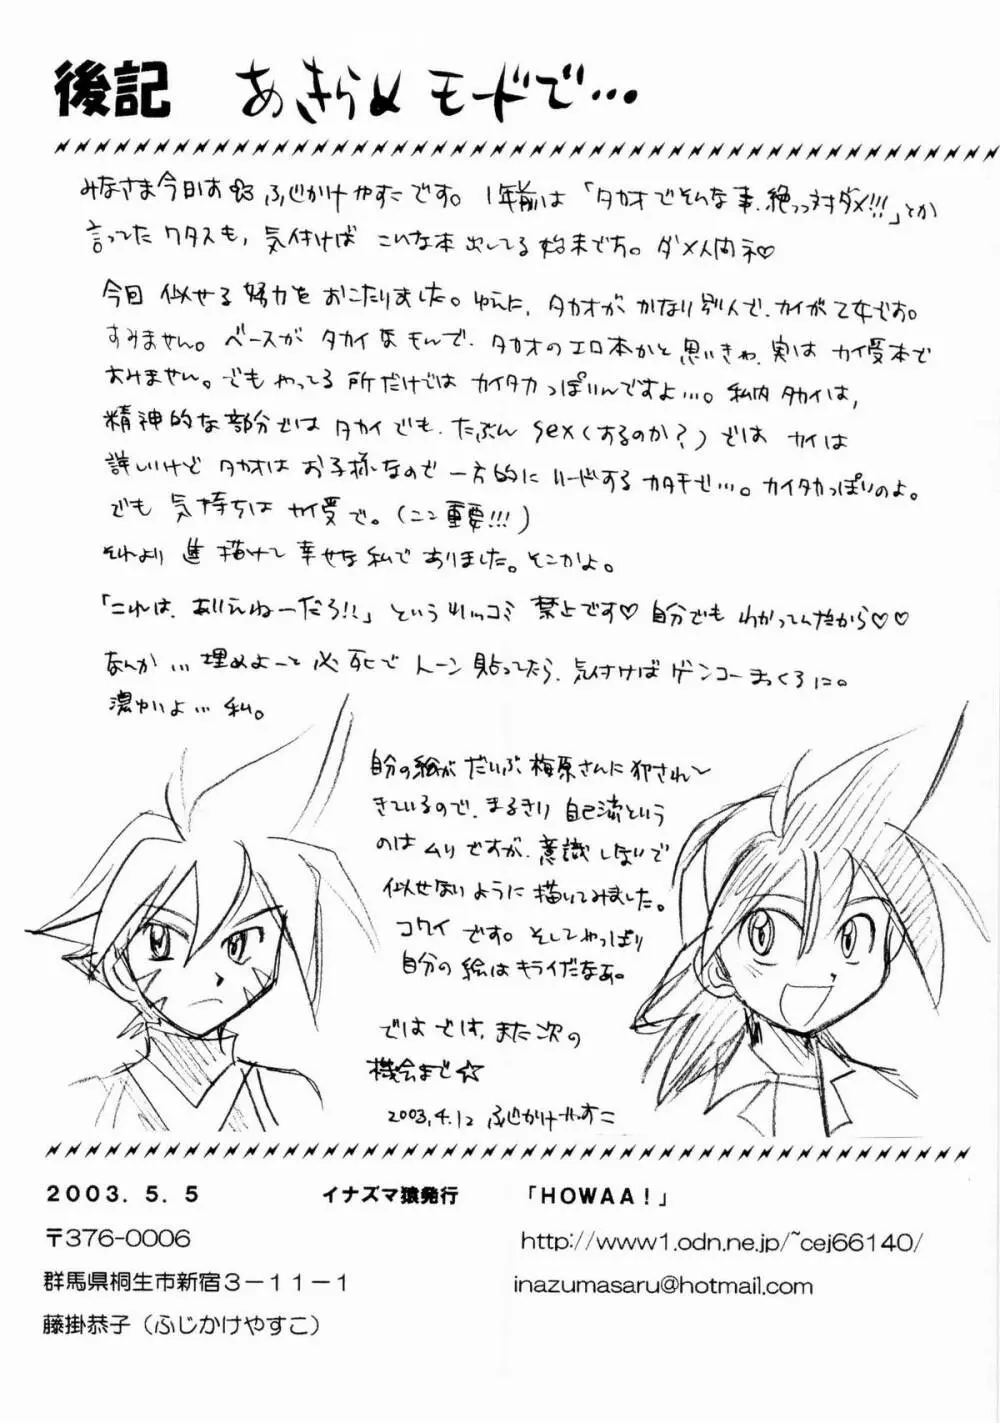 後記 あきらめモードで…
みなさま今日お ふじかけやすこです。1年前は「タカオでそんな事、絶っっ対ダメ!!!」とか
言ってたワタスも、気付けば こんな本出してる始末です。ダメ人間ネ♡
今回 似せる努力をおこたりました。ゆえに、タカオがかなり別人で、カイが乙女です。
すみません。ベースがタカイなもんで、タカオのエロ本かと思いきや、実はカイ受本で
すみません。でも やってる所だけではカイタカっぽいんですよ…。私内タカイは、
精神的な部分ではタカイでも、たぶんsex(するのか?)ではカイは
詳しいけどタカオはお子様なので一方的にリードするカタチで…。カイタカっぽいのよ。
でも気持ちはカイ受で。(ここ重要!!!)
それより 進 描けて幸せな私でありました。そこかよ。
「これは、ありえねーだろ!!」という ツッコミ禁止です♡自分でもわかってんだから♡♡
なんか…埋めよーと必死でトーン貼ってたら、気付けばゲンコーまっくろに。
濃ゆいよ…私。
自分の絵がだいぶ梅原さんに犯されて
きているので、まるきり自己流という
のはムリですが、意識しないで
似せないように描いてみました。
コワイです。そしてやっぱり
自分の絵はキライだなあ。
ではでは、また次の
機会まで☆
2003.4.12 ふじかけやすこ
2003.5.5 イナズマ猿発行 「HOWAA!」
〒376-0006 http://www1.odn.ne.jp/~cej66140/
群馬県桐生市新宿3-11-1 inazumasaru@hotmail.com
藤掛恭子(ふじかけやすこ)